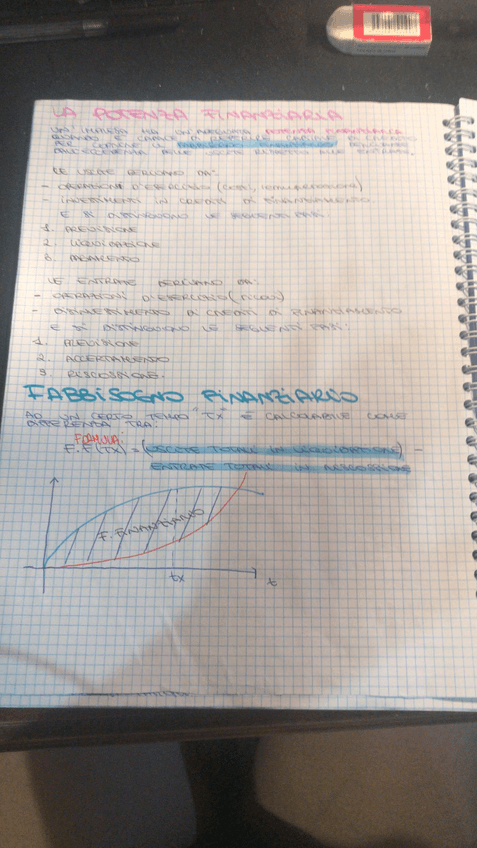 LA POTENZA FINANZIARIA
UN' IMPRESA HA UN'ADEGUATA POTENZA FINANZIARIA
QUANDO È CAPACE DI OTTENERE CAPITALE DI CREDITO
PER COPRIRE IL FABBISOGNO FINANZIARIO DERIVANTE
DALL'ECCEDENZA DELLE USCITE RISPETTO ALLE ENTRATE.
LE USCITE DERIVANO DA:
- OPERAZIONI D'ESERCIZIO (COSTI, REMUNERAZIONI)
- INVESTIMENTI IN CREDITI DI FINANZIAMENTO
E SI DISTINGUONO LE SEGUENTI FASI:
1. PREVISIONE
2. LIQUIDAZIONE
3. PAGAMENTO
LE ENTRATE DERIVANO DA:
- OPERAZIONI D'ESERCIZIO (RICAVI)
- DISINVESTIMENTO DI CREDITI DI FINANZIAMENTO
E SI DISTINGUONO LE SEGUENTI FASI:
1. PREVISIONE
2. ACCERTAMENTO
3. RISCOSSIONE.
FABBISOGNO FINANZIARIO
AD UN CERTO TEMPO "TX" È CALCOLABILE COME
DIFFERENZA TRA:
FORMULA:
F.F(TX) = (USCITE TOTALI IN LIQUIDAZIONE) -
ENTRATE TOTALI IN RISCOSSIONE
F. FINANZIARIO
tx
t